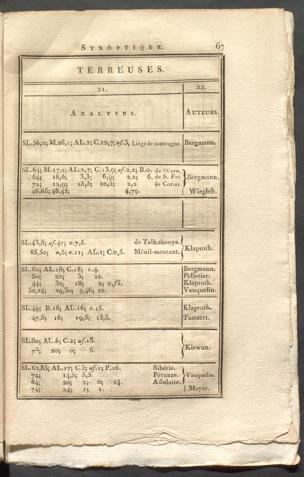 SYNOPTIQUE. 67
TERREUSES.
21. 22.
ANALYSES. AUTEURS.
SL.56,2; M.26,1; AL.2; C.12,7; af.3, Liège de montagne. Bergmann.
SL.64; M.17,2; AL.2,7; C.13,9; af.2,2; B.0. de Warm.
64; 18,6; 3,3; 6,9; 2,2; 6. de S. Foi. Bergmann.
72; 12,9; 13,3; 10,5; 2,2. de Corias.
46,66; 48,45; 4,79. Wiegleb.
SL.43,5; af.47; e.7,5. de Telkobonya.
85,50; 0,5; e.11; AL.1; C.0,5. Ménil-montant. Klaproth.
SL.60; AL.18; C.18; e.4. Bergmann.
50; 20; 8; 22. Pelletier.
44; 30; 18; 2; 0,75. Klaproth.
50,24; 29,30; 9,46; 10. Vauquelin.
SL.49; B.18; AL.16; e.15. Klaproth.
47,5; 16; 19,5; 13,5. Tassaert.
SL.80; AL.6; C.2; af.13.
75; 20; 0; 5. Kirwan.
SL.62,83; AL.17; C.3; af.1; P.16. Sibérie.
74; 14,5; 5,5. Pétunzé. Vauquelin.
64; 20; 2; 0; 14. Adulaire.
74; 24; 1; 1. Meyer.